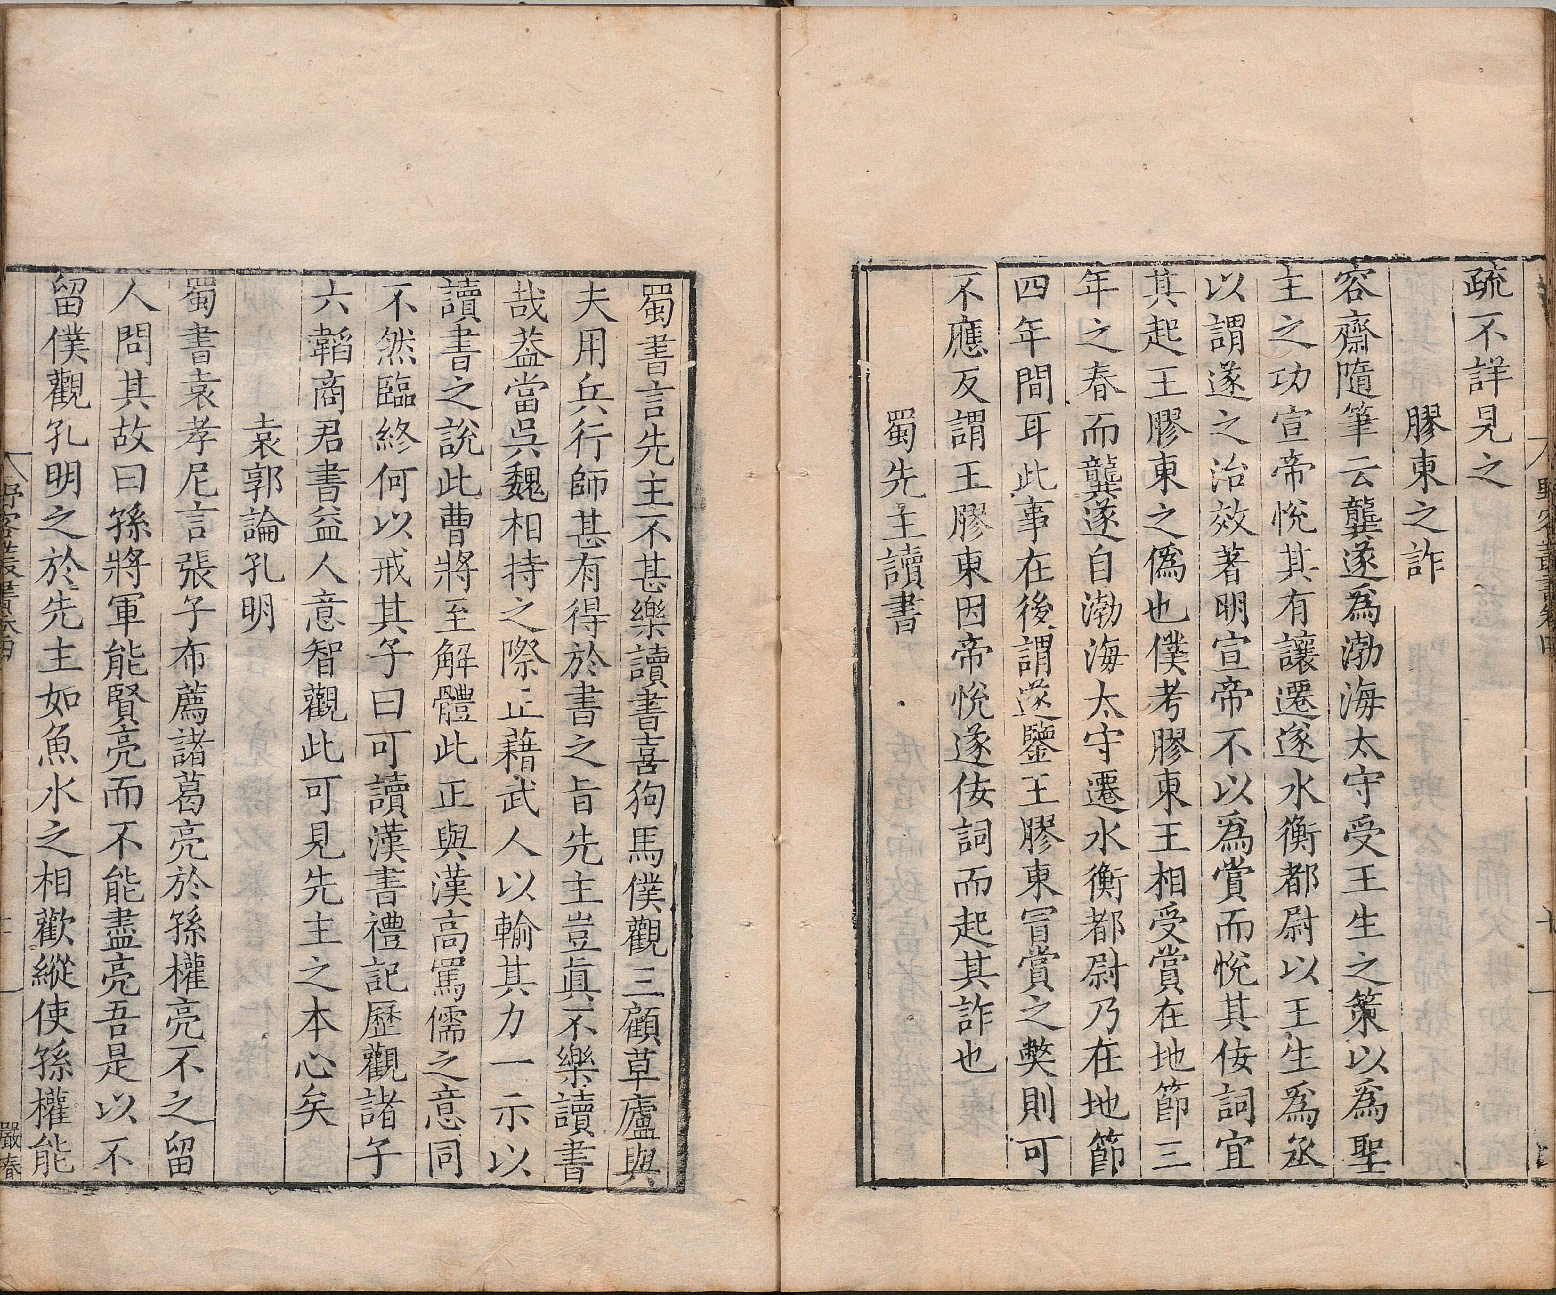 野客叢書卷四
疏不詳見之
膠東之詐
容齋隨筆云龔遂為渤海太守受王生之策以為聖
主之功宣帝悅其有讓遷遂水衡都尉以王生為丞
以謂遂之治效著明宣帝不以為賞而悅其佞詞宜
其起王膠東之僞也僕考膠東王相受賞在地節三
年之春而龔遂自渤海太守遷水衡都尉乃在地節
四年間耳此事在後謂遂鑒王膠東冒賞之獘則可
不應反謂王膠東因帝悅遂佞詞而起其詐也
蜀先主讀書
蜀書言先主不甚樂讀書喜狗馬僕觀三顧草廬與
夫用兵行師甚有得於書之旨先主豈眞不樂讀書
哉葢當吳魏相持之際正藉武人以輸其力一示以
讀書之說此曹將至解體此正與漢高罵儒之意同
不然臨終何以戒其子曰可讀漢書禮記歷觀諸子
六韜商君書益人意智觀此可見先主之本心矣
袁郭論孔明
蜀書袁孝尼言張子布薦諸葛亮於孫權亮不之留
人問其故曰孫將軍能賢亮而不能盡亮吾是以不
留僕觀孔明之於先主如魚水之相歡縱使孫權能
野客叢書卷四
嚴春